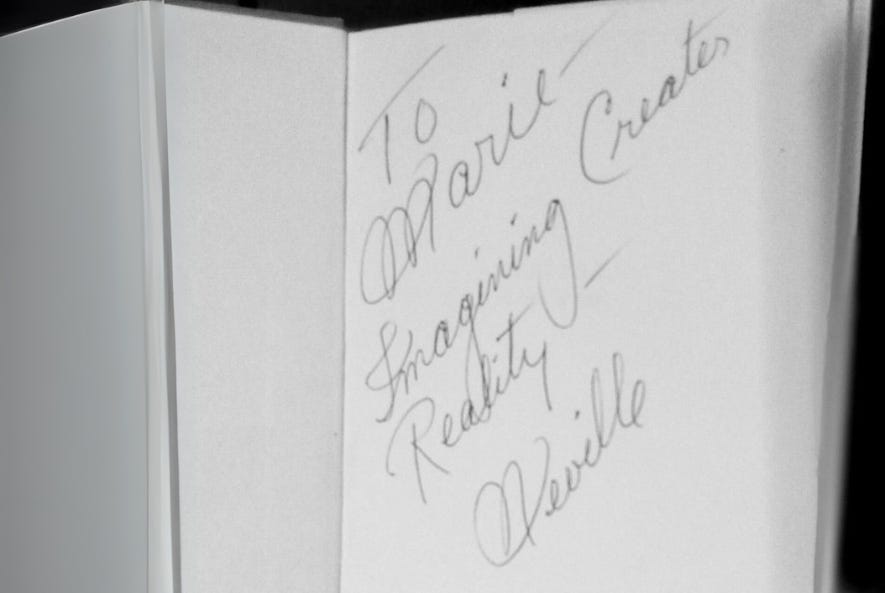 To
Marie –
Imagining Creates
Reality –
Neville